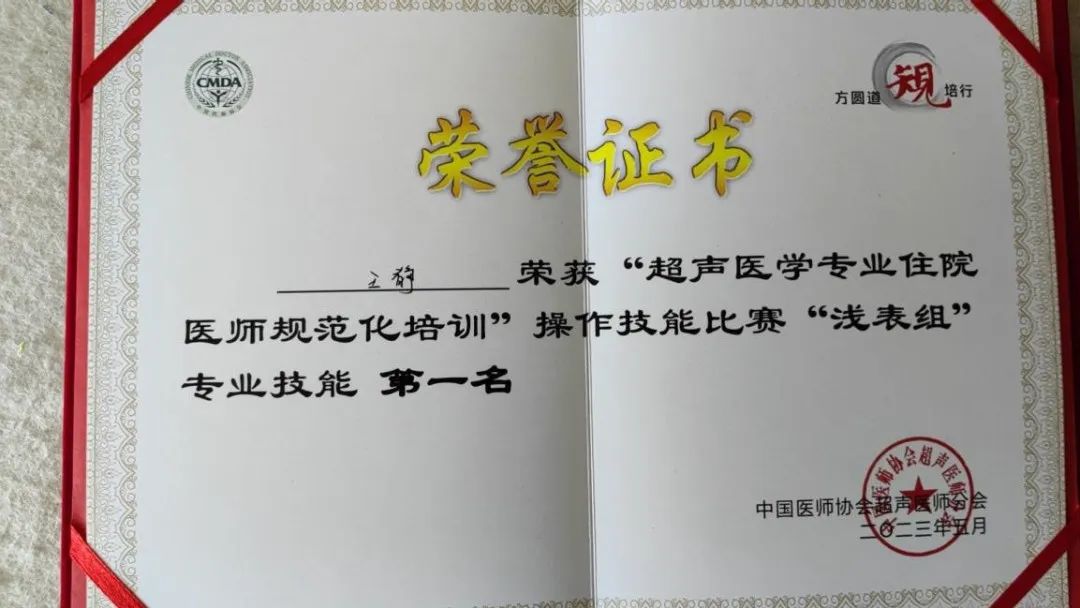 CMDA
方圆道 规 培行
荣誉证书
王静 荣获“超声医学专业住院
医师规范化培训”操作技能比赛“浅表组”
专业技能 第一名
中国医师协会超声医师分会
二〇二三年五月
中国医师协会超声医师分会